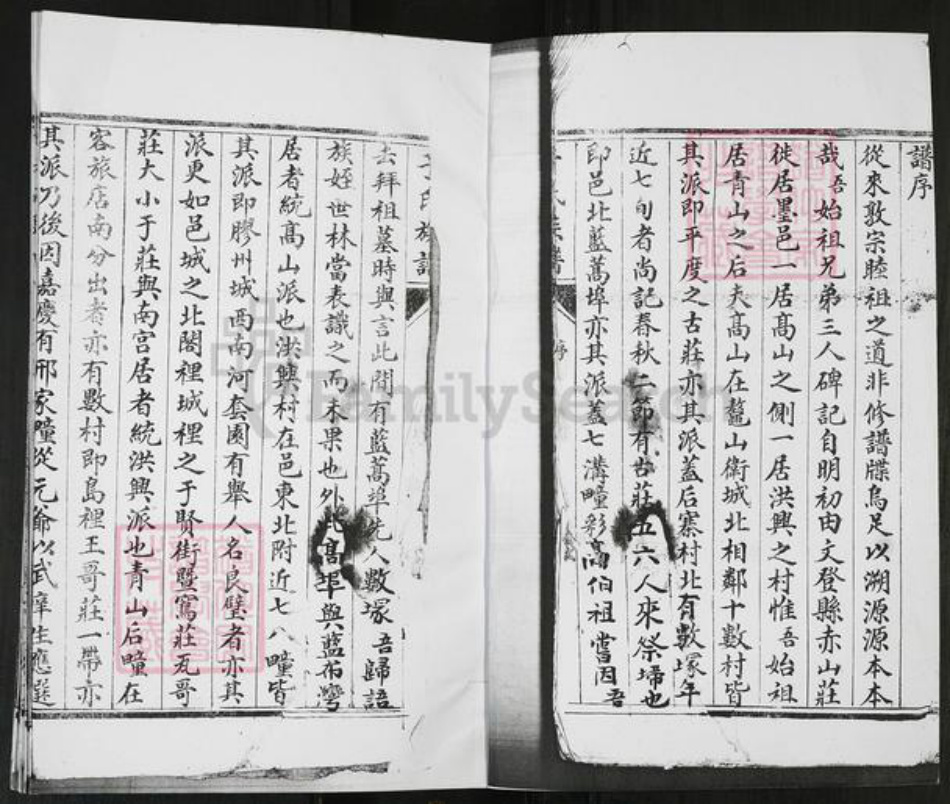 譜序
從來敦宗睦祖之道非修譜牒烏足以溯源源本本
哉吾始祖兄弟三人碑記自明初由文登縣赤山莊
徙居墨邑一居高山之側一居洪興之村惟吾始祖
居青山之后夫高山在鼇山衛城北相鄰十數村皆
其派即平度之古莊亦其派蓋后寨村北有數塚年
近七旬者尚記春秋二節有古莊五六人來祭埽也
即邑北藍蒿埠亦其派蓋七溝疃彩高伯祖嘗因吾
于氏族譜
去拜祖墓時與言此間有藍蒿埠先人數塚吾歸語
族姪世林當表識之而未果也外此高埠與藍布灣
居者統高山派也洪興村在邑東北附近七八疃皆
其派即膠州城西南河套園有舉人名良璧者亦其
派更如邑城之北閣裡城裡之于賢街暨窩莊瓦哥
莊大小于莊與南宮居者統洪興派也青山后疃在
客旅店南分出者亦有數村即島裡王哥莊一帶亦
其派乃後因嘉慶有邢家疃從元爺以武庠生應選
FamilySearch